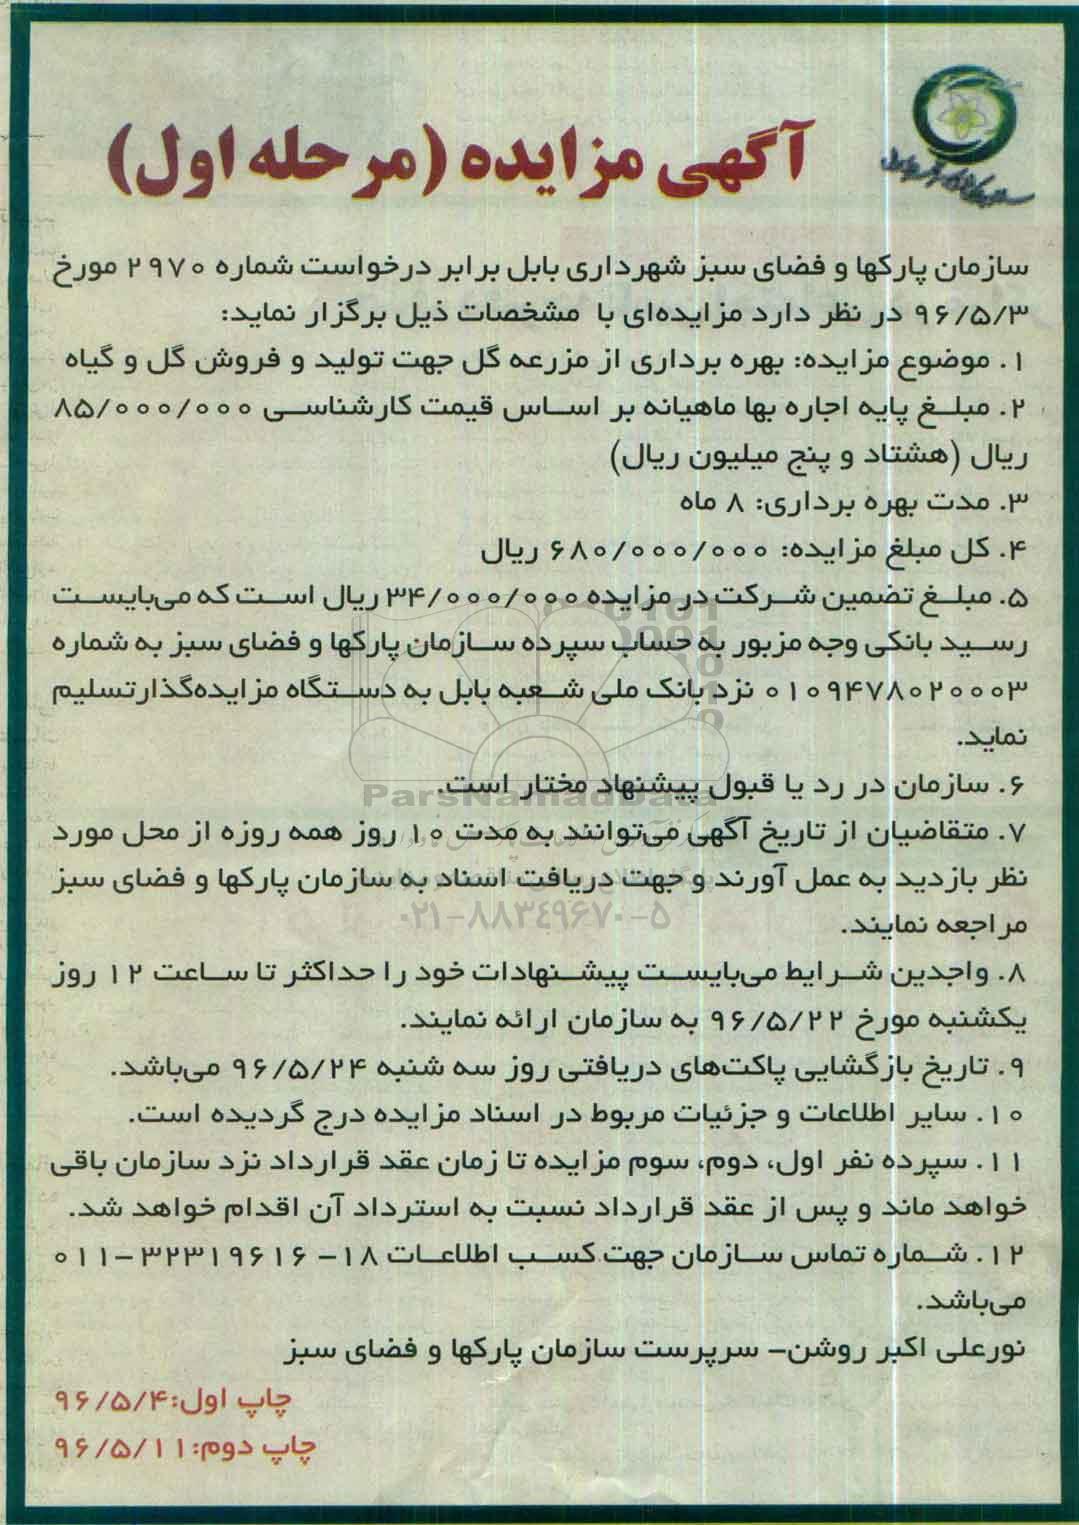 آگهی مزایده (مرحله اول)
سازمان پارکها و فضای سبز شهرداری بابل برابر درخواست شماره ۲۹۷۰ مورخ
۹۶/۵/۳ در نظر دارد مزایده‌ای با مشخصات ذیل برگزار نماید:
۱. موضوع مزایده: بهره برداری از مزرعه گل جهت تولید و فروش گل و گیاه
۲. مبلغ پایه اجاره بها ماهیانه بر اساس قیمت کارشناسی ۸۵/۰۰۰/۰۰۰
ریال (هشتاد و پنج میلیون ریال)
۳. مدت بهره برداری: ۸ ماه
۴. کل مبلغ مزایده: ۶۸۰/۰۰۰/۰۰۰ ریال
۵. مبلغ تضمین شرکت در مزایده ۳۴/۰۰۰/۰۰۰ ریال است که می‌بایست
رسید بانکی وجه مزبور به حساب سپرده سازمان پارکها و فضای سبز به شماره
۰۱۰۹۴۷۸۰۲۰۰۰۳ نزد بانک ملی شعبه بابل به دستگاه مزایده‌گذار تسلیم
نماید.
۶. سازمان در رد یا قبول پیشنهاد مختار است.
ParsNamadData
۷. متقاضیان از تاریخ آگهی می‌توانند به مدت ۱۰ روز همه روزه از محل مورد
نظر بازدید به عمل آورند و جهت دریافت اسناد به سازمان پارکها و فضای سبز
مراجعه نمایند.
۰۲۱-۸۸۳۴۹۶۷۰-۵
۸. واجدین شرایط می‌بایست پیشنهادات خود را حداکثر تا ساعت ۱۲ روز
یکشنبه مورخ ۹۶/۵/۲۲ به سازمان ارائه نمایند.
۹. تاریخ بازگشایی پاکت‌های دریافتی روز سه شنبه ۹۶/۵/۲۴ می‌باشد.
۱۰. سایر اطلاعات و جزئیات مربوط در اسناد مزایده درج گردیده است.
۱۱. سپرده نفر اول، دوم، سوم مزایده تا زمان عقد قرارداد نزد سازمان باقی
خواهد ماند و پس از عقد قرارداد نسبت به استرداد آن اقدام خواهد شد.
۱۲. شماره تماس سازمان جهت کسب اطلاعات ۱۸- ۰۱۱-۳۲۳۱۹۶۱۶
می‌باشد.
نورعلی اکبر روشن- سرپرست سازمان پارکها و فضای سبز
چاپ اول:۹۶/۵/۴
چاپ دوم:۹۶/۵/۱۱